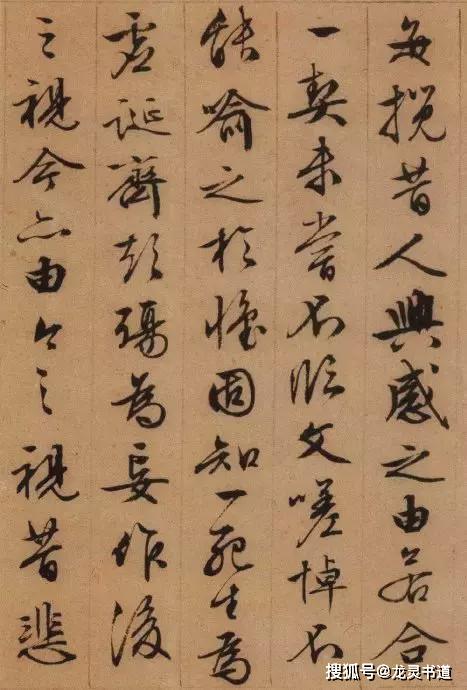 每攬昔人興感之由若合
一契未嘗不臨文嗟悼不
能喻之於懷固知一死生為
虛誕齊彭殤為妄作後
之視今亦由今之視昔悲
搜狐号@龙灵书道